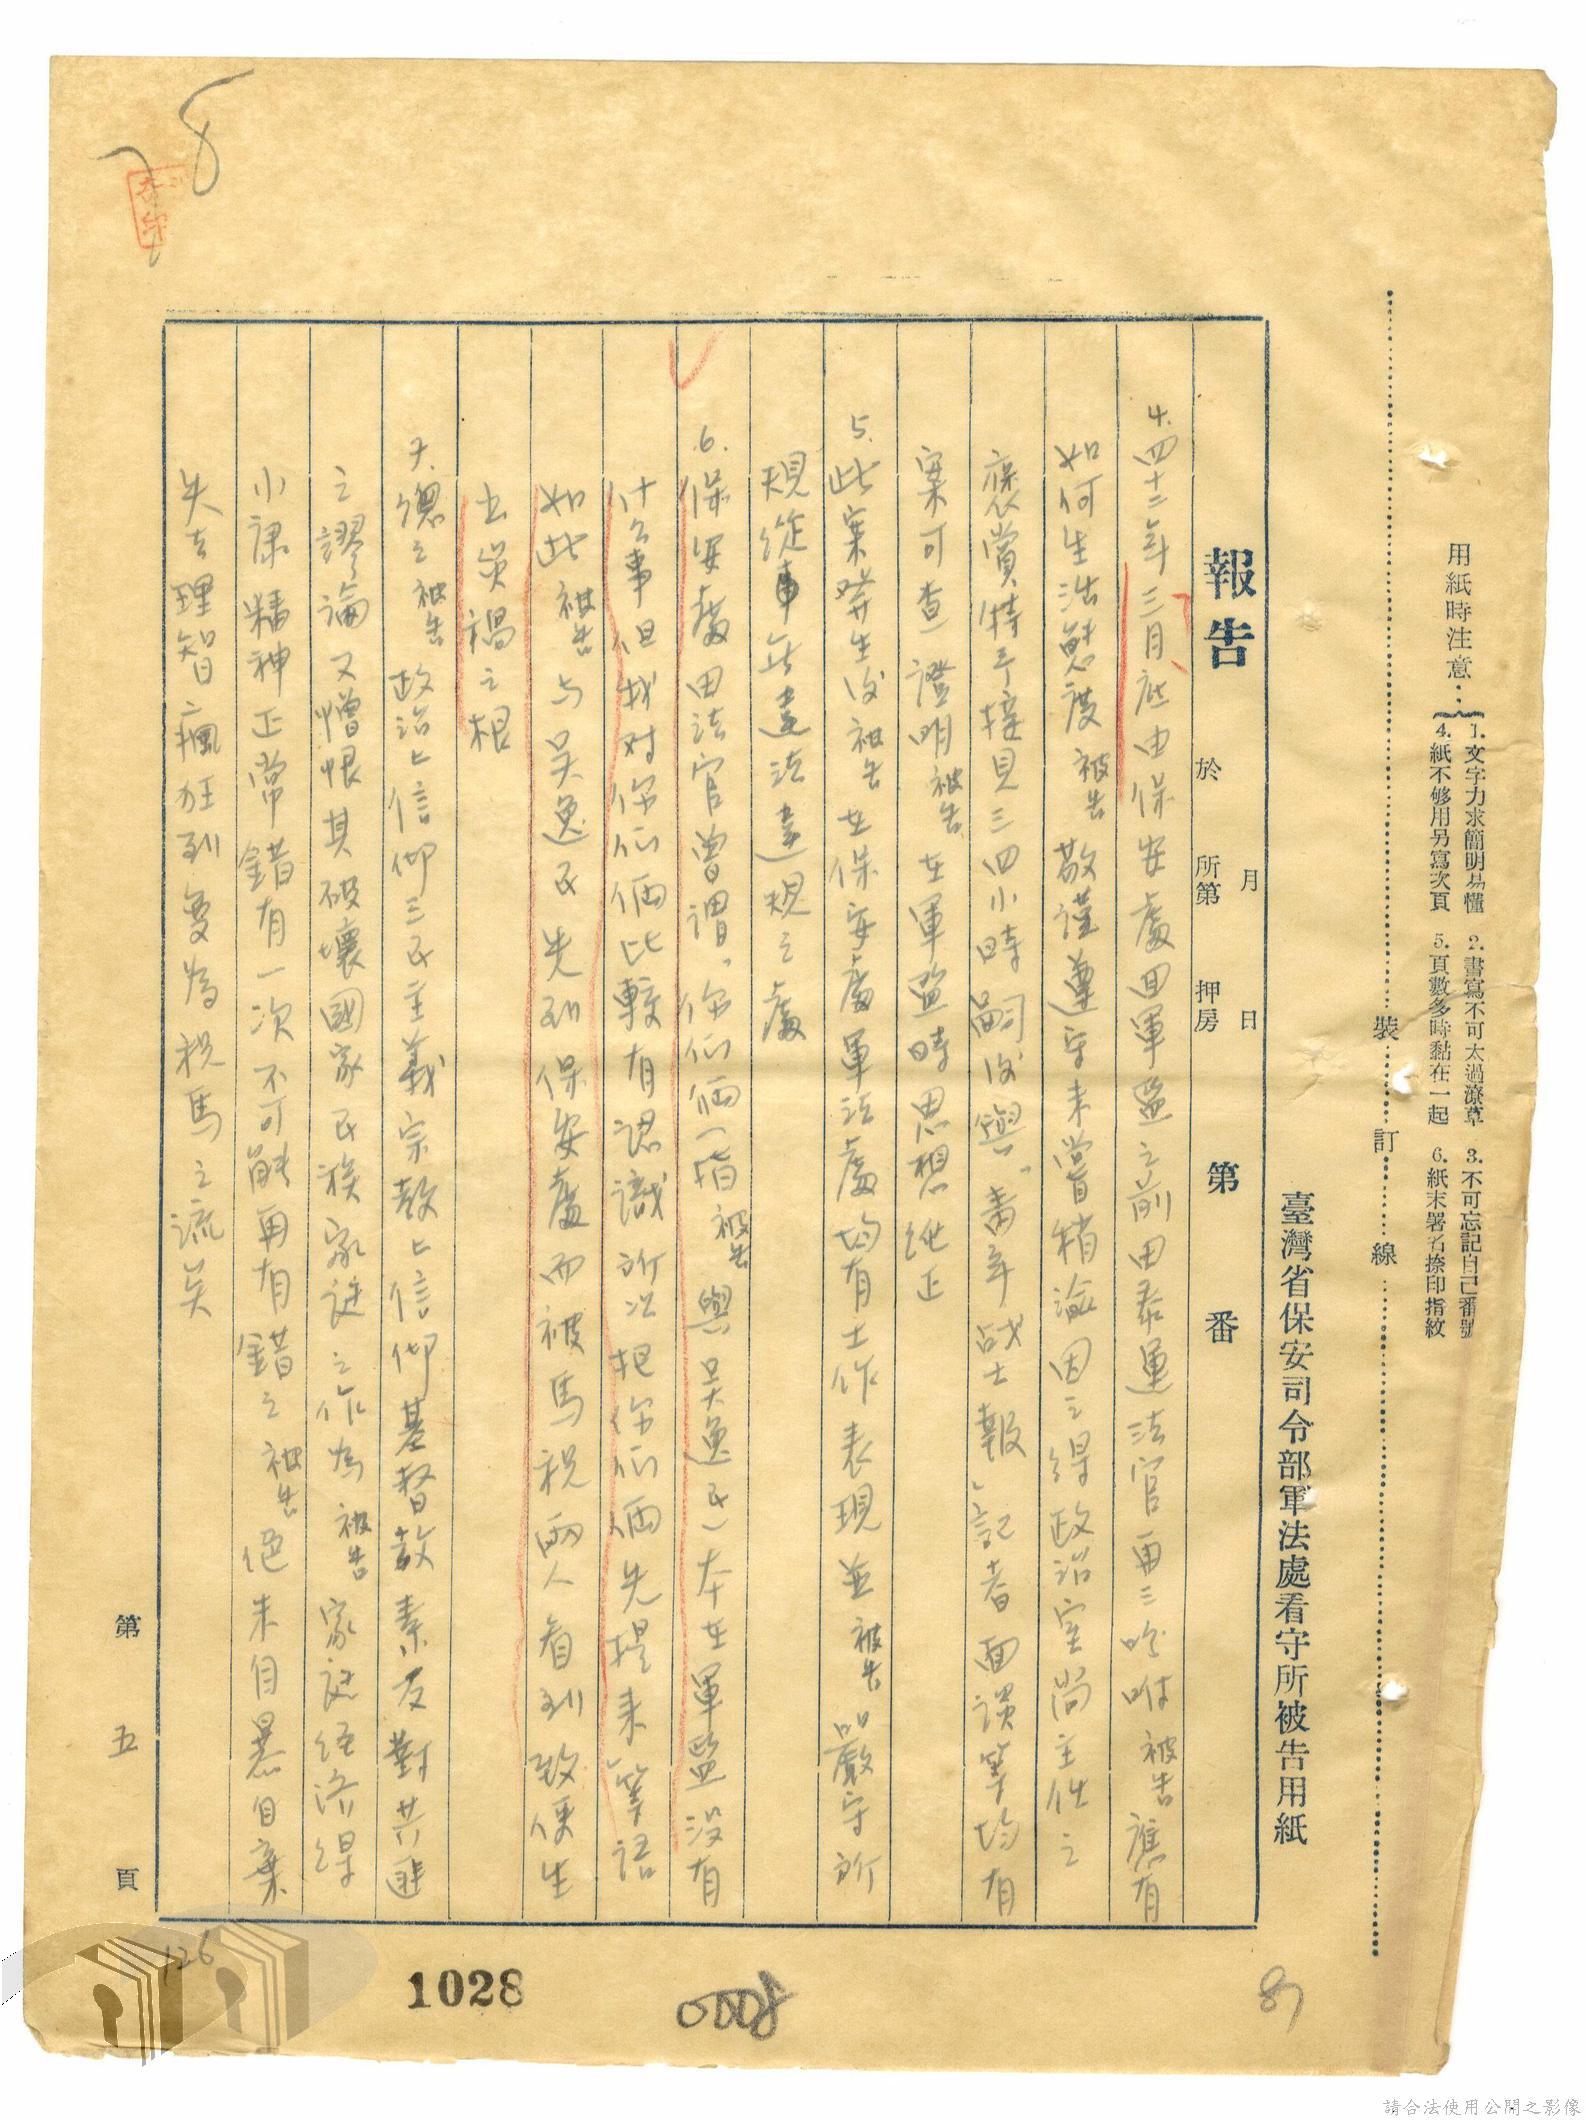 用紙時注意：
1.文字力求簡明易懂 2.書寫不可太過潦草 3.不可忘記自己番號
4.紙不够用另寫次頁 5.頁數多時黏在一起 6.紙末署名捺印指紋
裝 訂 線
臺灣省保安司令部軍法處看守所被告用紙
月 日
報告 於 所第 押房 第 番
4.四十二年三月底由保安處回軍監之前田泰運法官再三吩咐被告應有
如何生活態度被告敬謹遵守未嘗稍渝因之得政治室尚主任之
褒賞特予接見三四小時嗣後與「青年战士報」記者面談等均有
案可查證明被告在軍監時思想純正
5.此案發生後被告在保安處軍法處均有工作表現並被告嚴守所
規從無違法違規之處
6.保安處田法官曾謂「你们倆(指被告與吴逸民)本在軍監没有
什么事但我对你们倆比較有認識所以把你们倆先提来」等語
如此被告与吴逸民先到保安處而被馬祝兩人看到致便生
出災禍之根
7.總之被告政治上信仰三民主義宗教上信仰基督教素反對共匪
之謬論又憎恨其破壞國家民族家庭之作為被告家庭經濟得
小康精神正常錯有一次不可能再有錯之被告絕未自暴自棄
失去理智瘋狂到變為祝馬之流矣
第 五 頁
126
1028
0008
87
78
請合法使用公開之影像